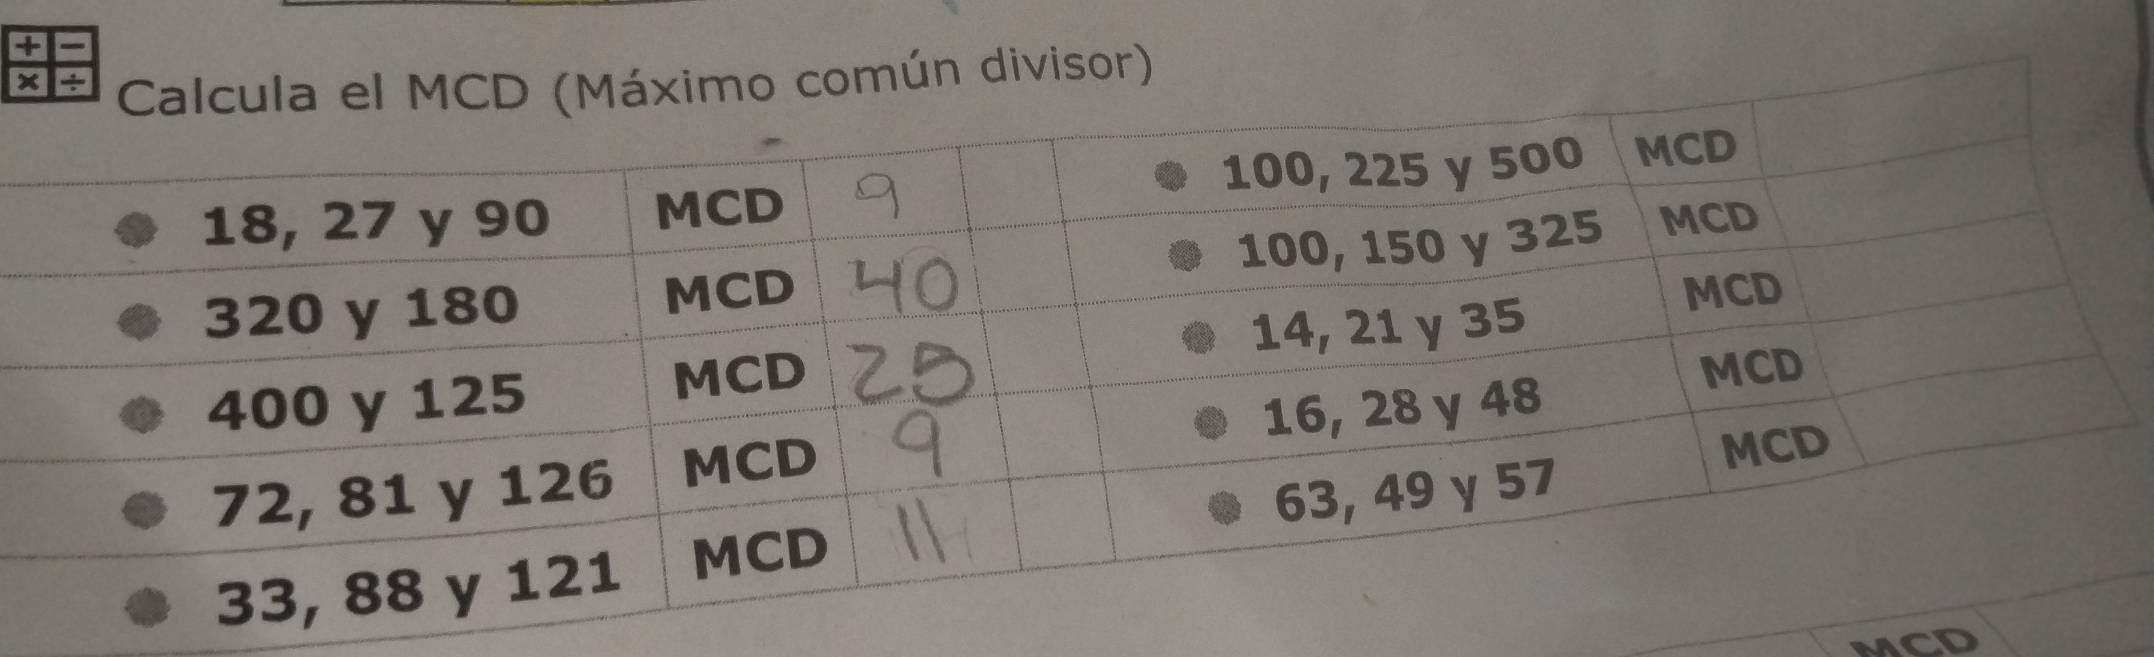 + −
× ÷
Calcula el MCD (Máximo común divisor)
18, 27 y 90 MCD 9
320 y 180 MCD 40
400 y 125 MCD 25
72, 81 y 126 MCD 9
33, 88 y 121 MCD 11
100, 225 y 500 MCD
100, 150 y 325 MCD
14, 21 y 35 MCD
16, 28 y 48 MCD
63, 49 y 57 MCD
MCD